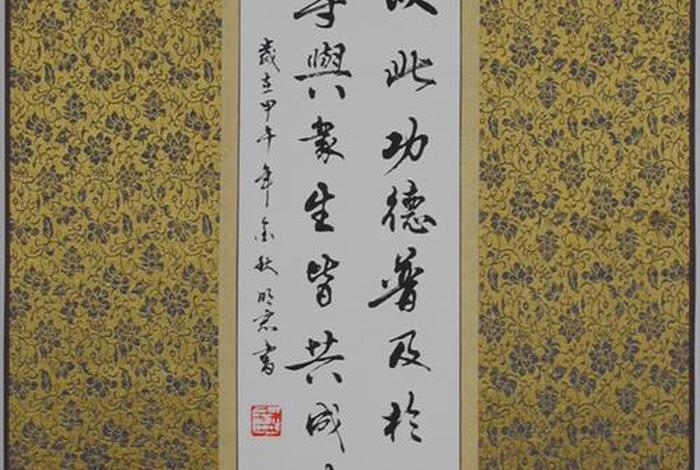 以此功德普及於
等與衆生皆共成
歲在甲午年金秋明君書